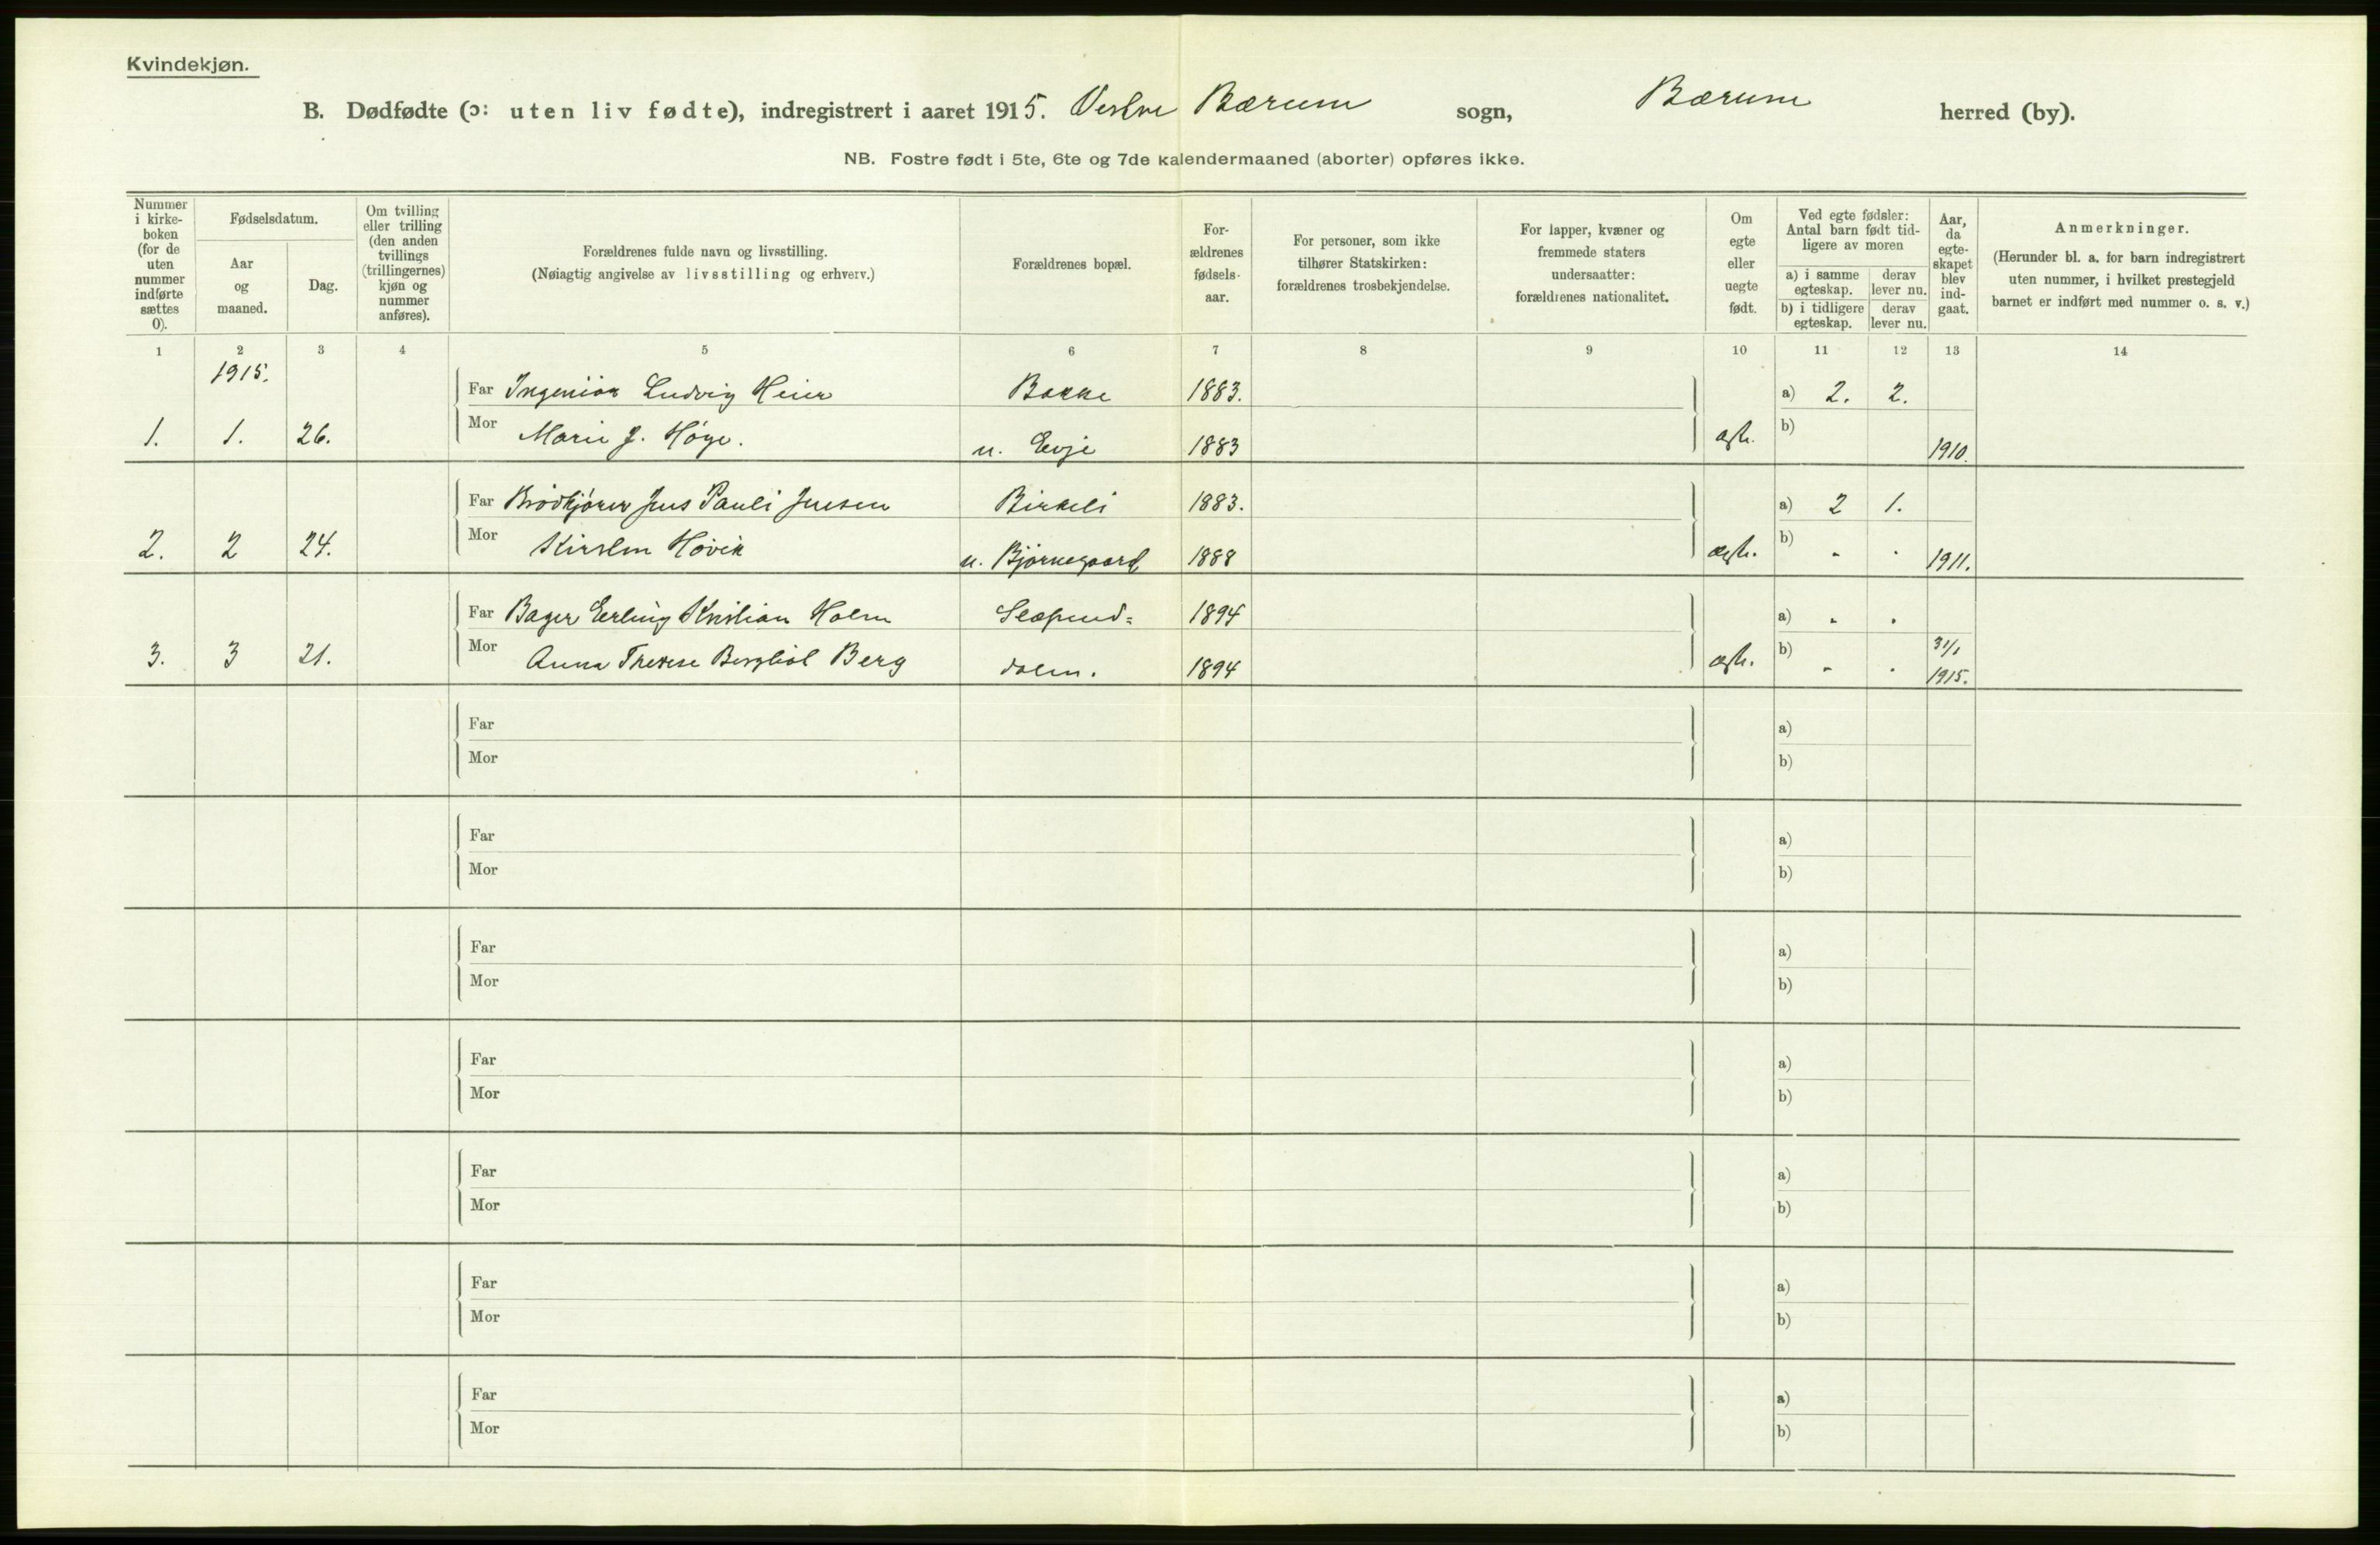 Kvindekjøn.
B. Dødfødte (ɔ: uten liv fødte), indregistrert i aaret 1915. Vestre Bærum sogn, Bærum herred (by).
NB. Fostre født i 5te, 6te og 7de kalendermaaned (aborter) opføres ikke.
Nummer i kirke-boken (for de uten nummer indførte sættes 0).
Fødselsdatum.
Aar og maaned.
Dag.
Om tvilling eller trilling (den anden tvillings (trillingernes) kjøn og nummer anføres).
Forældrenes fulde navn og livsstilling.
(Nøiagtig angivelse av livsstilling og erhverv.)
Forældrenes bopæl.
For-ældrenes fødsels-aar.
For personer, som ikke tilhører Statskirken: forældrenes trosbekjendelse.
For lapper, kvæner og fremmede staters undersaatter: forældrenes nationalitet.
Om egte eller uegte født.
Ved egte fødsler: Antal barn født tid-ligere av moren
a) i samme egteskap.
derav lever nu.
b) i tidligere egteskap.
derav lever nu.
Aar, da egte-skapet blev ind-gaat.
Anmerkninger.
(Herunder bl. a. for barn indregistrert uten nummer, i hvilket prestegjeld barnet er indført med nummer o. s. v.)
1 2 3 4 5 6 7 8 9 10 11 12 13 14
1915.
Far Ingeniør Ludvig Heier Bakke 1883. a) 2. 2.
1. 1. 26. Mor Marie J. Høye. u. Evje 1883 ægte. b) 1910.
Far Brødkjører Jens Pauli Jensen Birkeli 1883. a) 2 1.
2. 2 24. Mor Kirsten Høvik u. Bjørnegaard 1888 ægte. b) " " 1911.
Far Bager Erling Kristian Holm Slæpend= 1894 a) " "
3. 3 21. Mor Anna Therese Bergliot Berg dalen. 1894 ægte. b) " " 31/1 1915.
Far a)
Mor b)
Far a)
Mor b)
Far a)
Mor b)
Far a)
Mor b)
Far a)
Mor b)
Far a)
Mor b)
Far a)
Mor b)